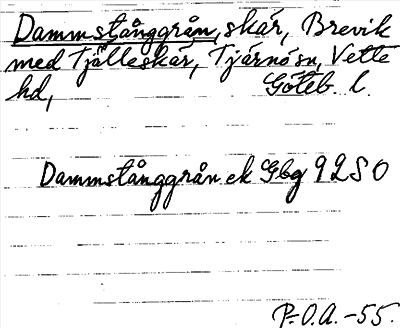 Dammstånggrån, skär, Brevik
med Tjälleskär, Tjärnösn, Vette
hd, Göteb. l.
Dammstånggrån ek Gbg 92 SO
P.O.A. -55.